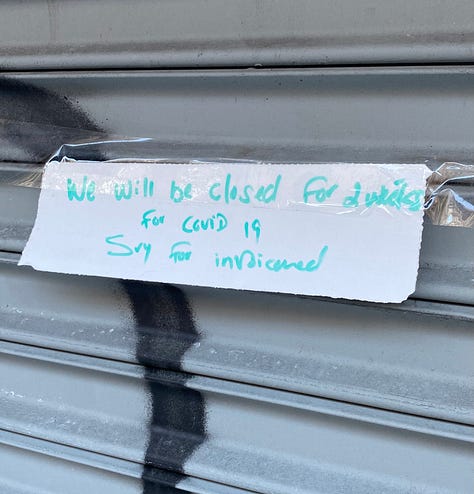 We will be closed For 2 weeks
For Covid 19
Sry For invicened